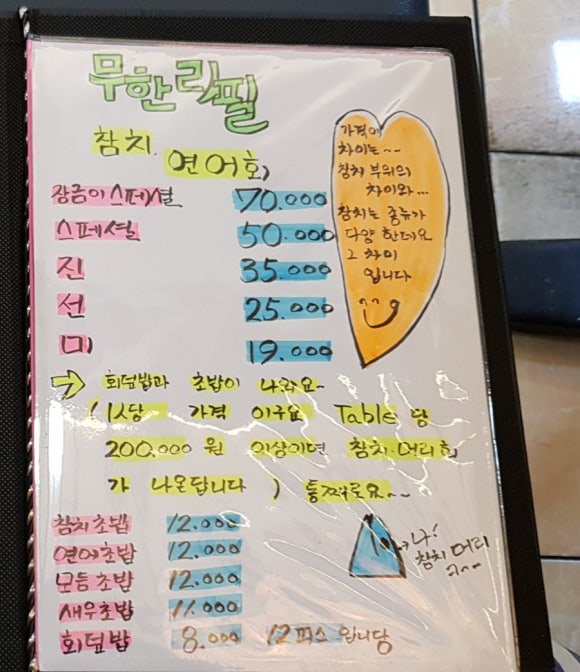 무한리필
참치, 연어회
장금이 스페셜 70.000
스페셜 50.000
진 35.000
선 25.000
미 19.000
가격에
차이는~~
참치 부위의
차이와...
참치는 종류가
다양 한데요
그 차이
입니다
→ 회덮밥과 초밥이 나와요~
(1人당 가격 이구요 Table 당
200.000 원 이상이면 참치.머리회
가 나온답니다) 통째로요~~
참치초밥 12.000
연어초밥 12.000
모듬초밥 12.000
새우초밥 11.000
회덮밥 8.000 12피스 입니당
나!
참치 머리